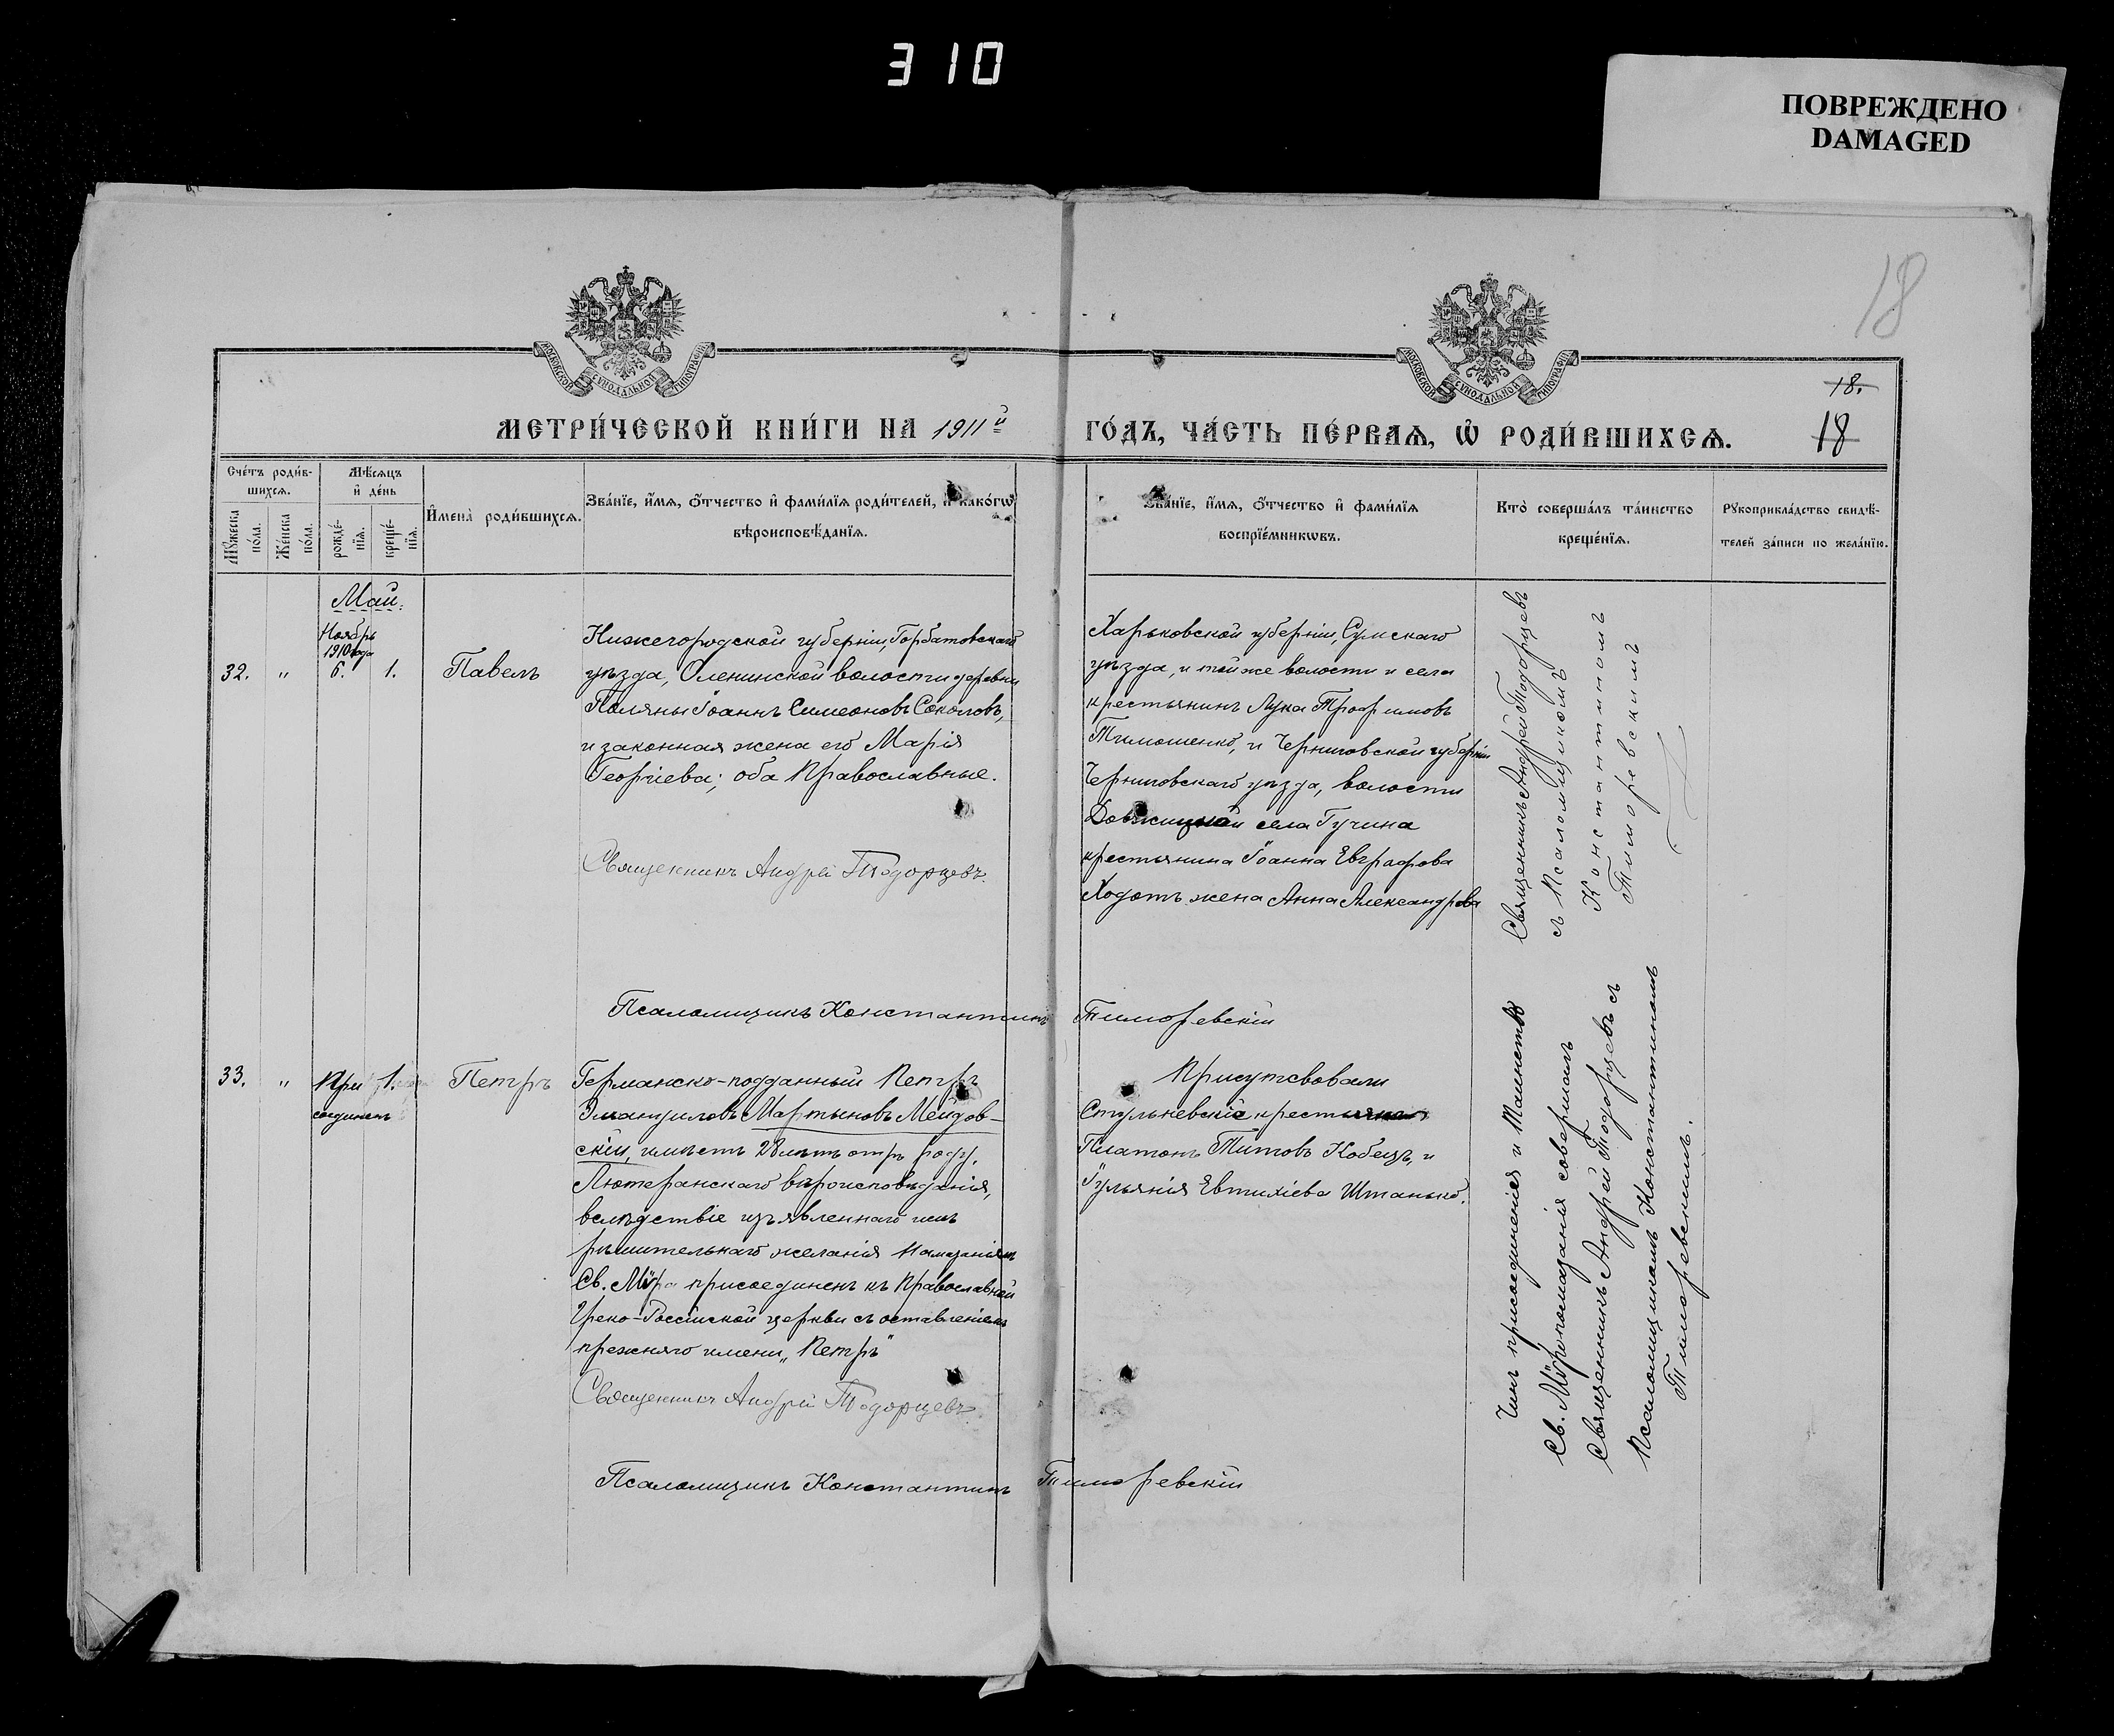 310
ПОВРЕЖДЕНО
DAMAGED
18
МОСКОВСКОЙ СѴНОДАЛЬНОЙ ТИПОГРАФІИ
МОСКОВСКОЙ СѴНОДАЛЬНОЙ ТИПОГРАФІИ
18.
18
МЕТРИ́ЧЕСКОЙ КНИ́ГИ НА 1911й
ГО́ДЪ, ЧА́СТЬ ПЕ́РВАѦ, Ѡ҆ РОДИ́ВШИХСѦ.
Сче́тъ роди́в-
шихсѧ.
Мꙋжеска по́ла.
Же́нска по́ла.
Мѣ́сѧцъ
и҆ де́нь
рожде́-
нїѧ.
креще́-
нїѧ.
И҆мена̀ роди́вшихсѧ.
Зва́нїе, и҆́мѧ, ѻ҆́тчество и҆ фами́лїѧ роди́телей, и҆ како́гѡ
вѣроисповѣ́данїѧ.
Зва́нїе, и҆́мѧ, ѻ҆́тчество и҆ фами́лїѧ
воспрїе́мникѡвъ.
Кто̀ соверша́лъ та́инство
креще́нїѧ.
Рꙋкоприкла́дство свидѣ́-
телей за́писи по жела́нїю.
Май.
Ноябрь
1910 года
32. " 6. 1. Павелъ
Нижегородской губерніи, Горбатовскаго
уѣзда, Оленинской волости деревни
Поляны Іоаннъ Симеоновъ Соколовъ,
и законная жена его Марія
Георгіева; оба Православные.
Священникъ Андрей Тодорцевъ
Харьковской губерніи, Сумскаго
уѣзда, и той же волости и села
крестьянинъ Лука Трофимовъ
Тимошенко, и Черниговской губерніи
Черниговскаго уѣзда, волости
села Гучина
крестьянина Іоанна Евграфова
Ходотъ жена Анна Александрова
Священникъ Андрей Тодорцевъ
съ Псаломщикомъ
Константиномъ
Тиморевскимъ
Псаломщикъ Константинъ Тиморевскій
33. " При 1. Петръ
соединенъ
Германско-подданный Петръ
Эмануиловъ Мартыновъ Мейдов-
скій, имѣетъ 28 лѣтъ отъ роду,
Лютеранскаго вѣроисповѣданія,
вслѣдствіе изъявленнаго имъ
рѣшительнаго желанія помазаніемъ
Св. Мѵра присоединенъ къ Православной
Греко-Россійской церкви съ оставленіемъ
прежняго имени „Петръ"
Священникъ Андрей Тодорцевъ
Присутсвовали
Стульневскіе крестьяне
Платонъ Титовъ Кобецъ, и
Іульянія Евтихіева Штанько.
Чинъ присоединенія и Таинство
Св. Мѵропомазанія совершилъ
Священникъ Андрей Тодорцевъ съ
Псаломщикомъ Константиномъ
Тиморевскимъ.
Псаломщикъ Константинъ Тиморевскій